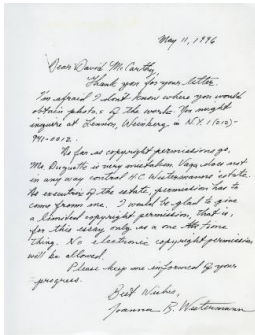 May 11, 1996
Dear David McCarthy,
Thank you for your letter.
I'm afraid I don't know where you would
obtain photos of the works. You might
inquire at Lennon, Weinberg in N.Y. 1(212)-
941-0012.
As far as copyright permissions go,
Mr. is very mistaken. Vaga does not
in any way control H.C. Westermann's estate.
As executrix of the estate, permission has to
come from me. I would be glad to give
a limited copyright permission, that is,
for this essay only as a one time
thing. No electronic copyright permission
will be allowed.
Please keep me informed of your
progress.
Best Wishes,
Joanna B. Westermann